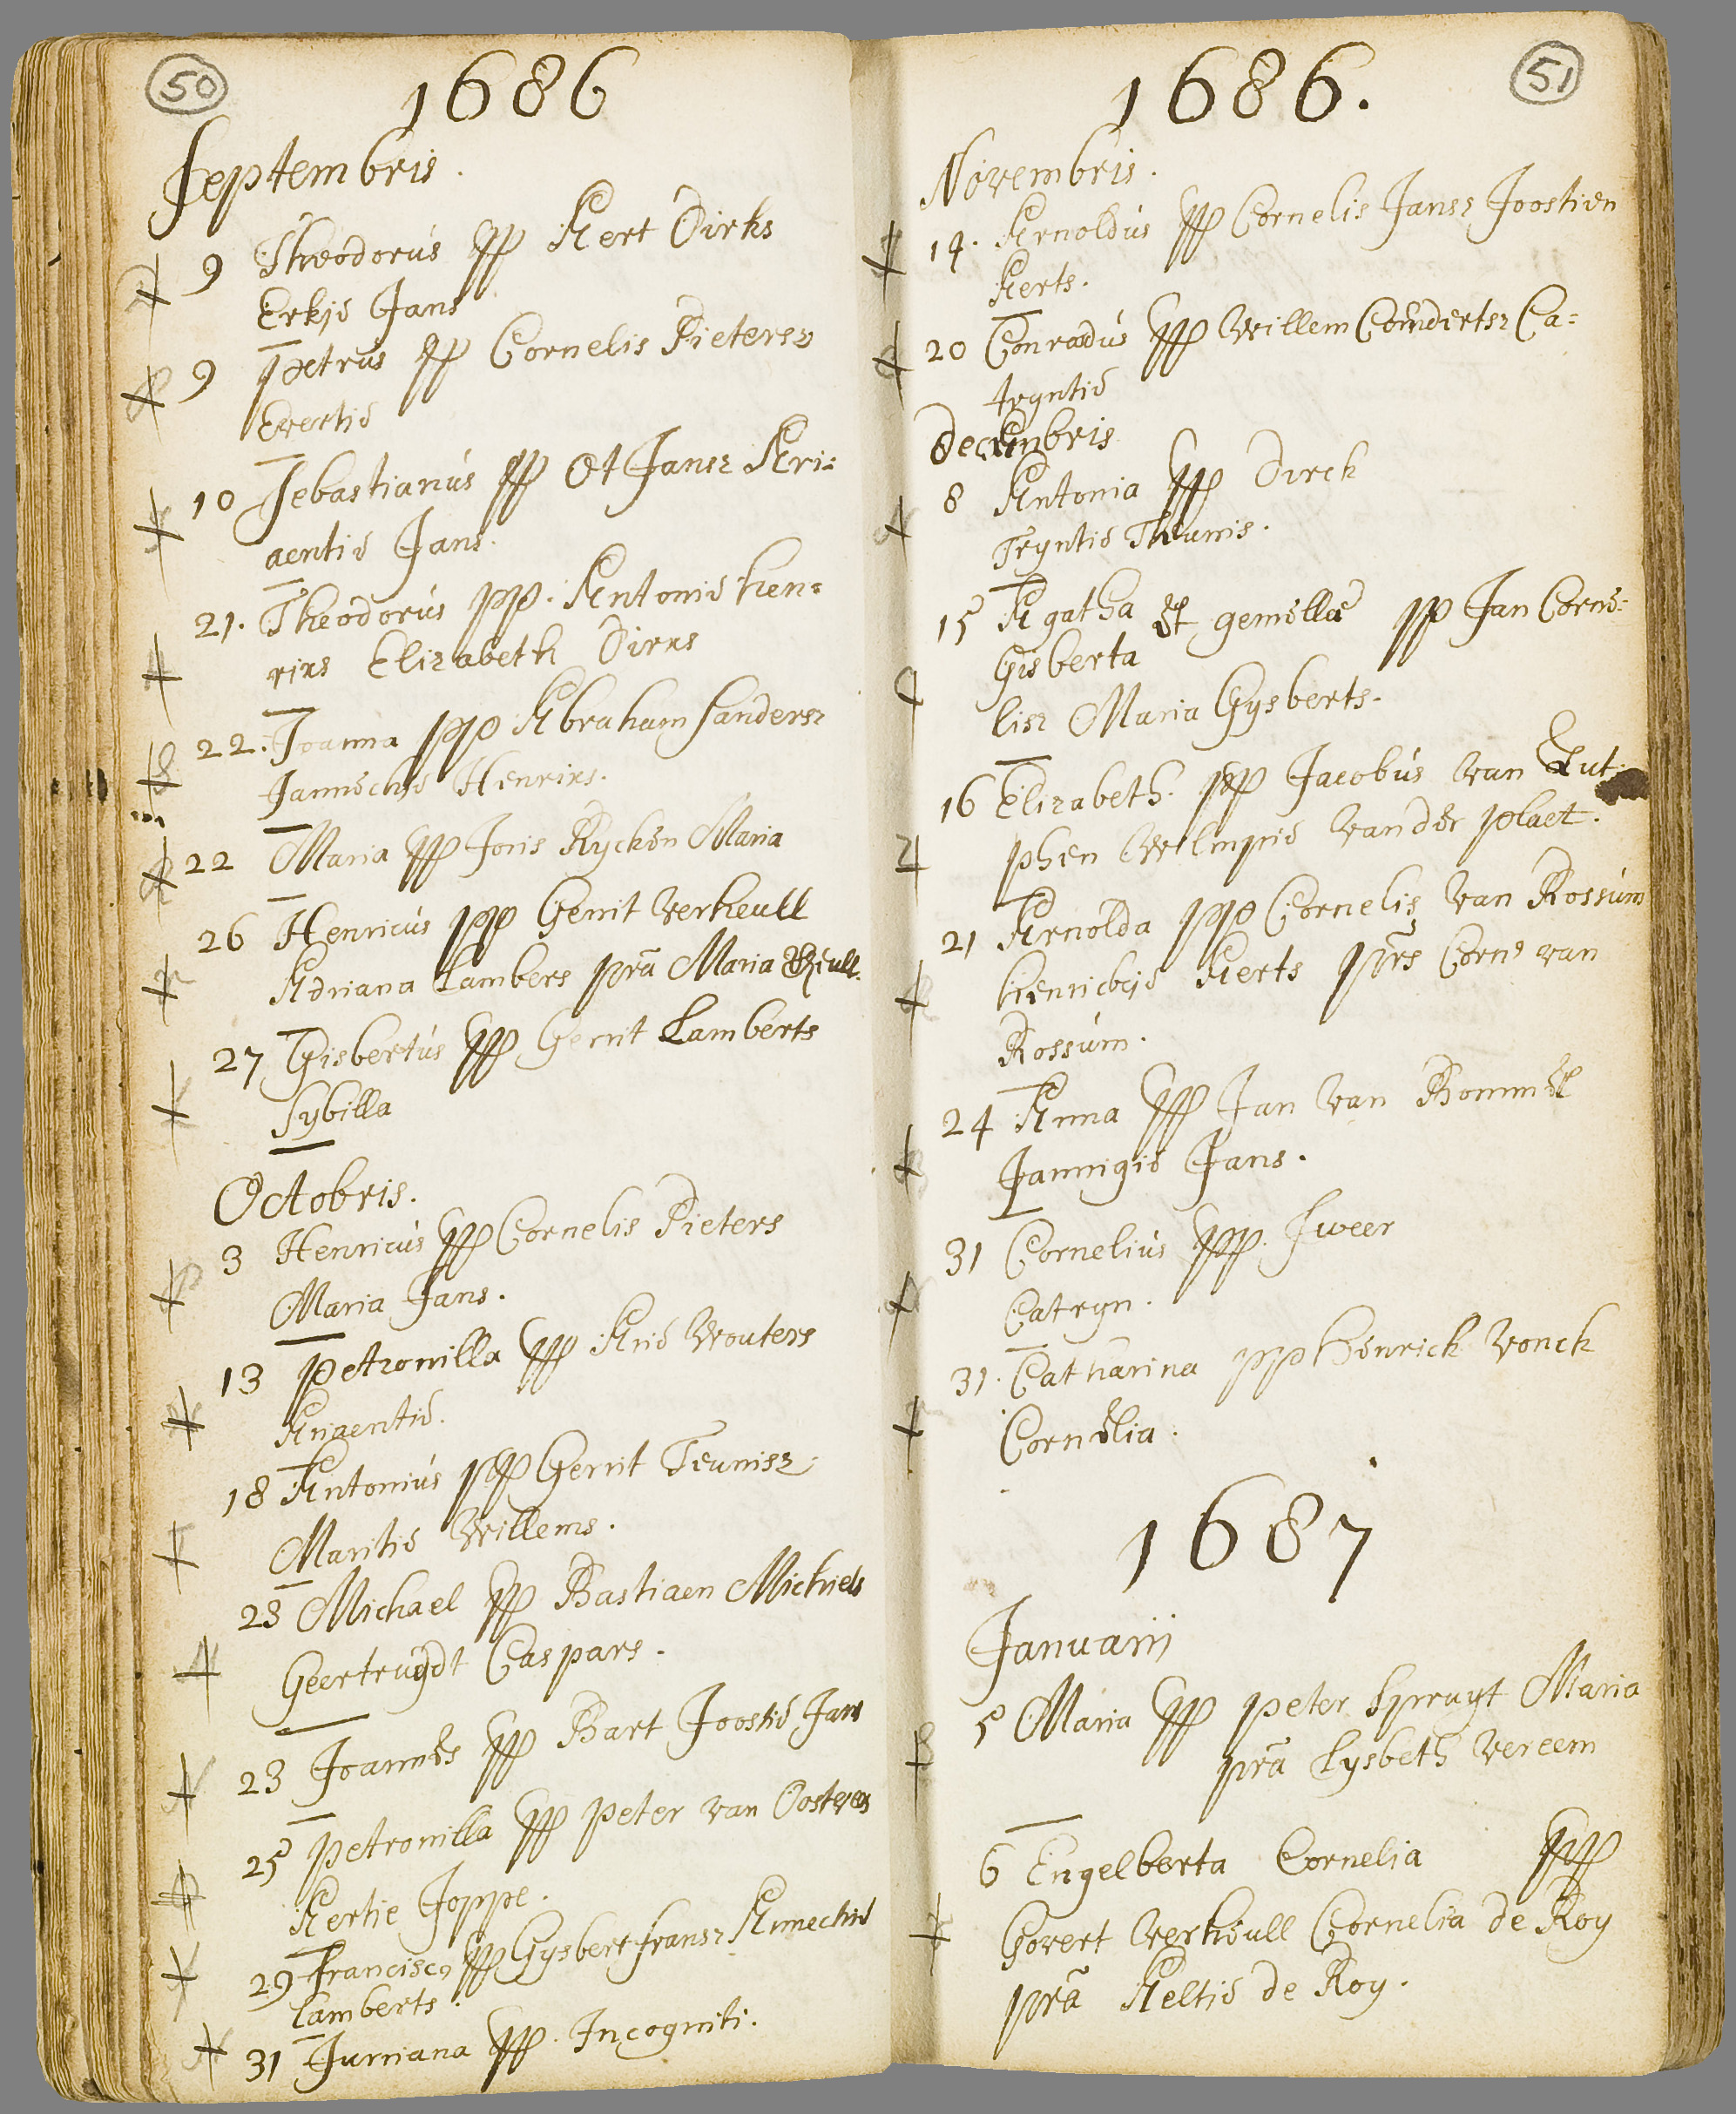 50
1686
Septembris.
9 Theodorus pp Aert Dirks
Erkje Jans
9 petrus pp Cornelis Pietersz
Evertie
10 Sebastianus pp Ot Jansz Ari=
aentie Jans.
21. Theodorus pp. Antonis hen=
rixs Elizabeth Dirxs
22. Joanna pp Abraham sandersz
Jannechie Henrixs.
22 Maria pp Joris Rycken Maria
26 Henricus pp Gerrit verheull
Adriana Lambers pra Maria
27 Gisbertus pp Gerrit Lamberts
Sybilla
Octobris.
3 Henricus pp Cornelis Pieters
Maria Jans.
13 petronilla pp Arie Wouters
Ariaentie.
18 Antonius pp Gerrit Teunisz
Maritie Willems.
23 Michael pp Bastiaen Michiels
Geertruydt Caspars.
23 Joannes pp Bart Joostie Jans
25 petronilla pp peter van Oosteren
Aertie Joppe.
29 Francisco pp Gysbert fransz Annechie
Lamberts.
31 Jurriana pp. Incogniti.
51
1686.
Novembris.
14. Arnoldus pp Cornelis Jansz Joostien
Aerts.
20 Conradus pp Willem Coenderts Ca=
tryntie
Decembris
8 Antonia pp Dirck
Tryntie Theunis.
15 Agatha et gemellae pp Jan Corne=
Gisberta
lisz Maria Gysberts.
16 Elizabeth pp Jacobus van Zut
phen Wilmpie van der plaet.
21 Arnolda pp Cornelis van Rossum
henrickie Aerts prs Corns van
Rossum.
24 Anna pp Jan van Bommel
Jannigie Jans.
31 Cornelius pp. Sweer
Catryn.
31. Catharina pp henrick vonck
Cornelia.
1687
Januarij
5 Maria pp peter Spruyt Maria
pra Lysbeth vereem
6 Engelberta Cornelia pp
Govert verheull Cornelia de Roy
pra Aeltie de Roy.